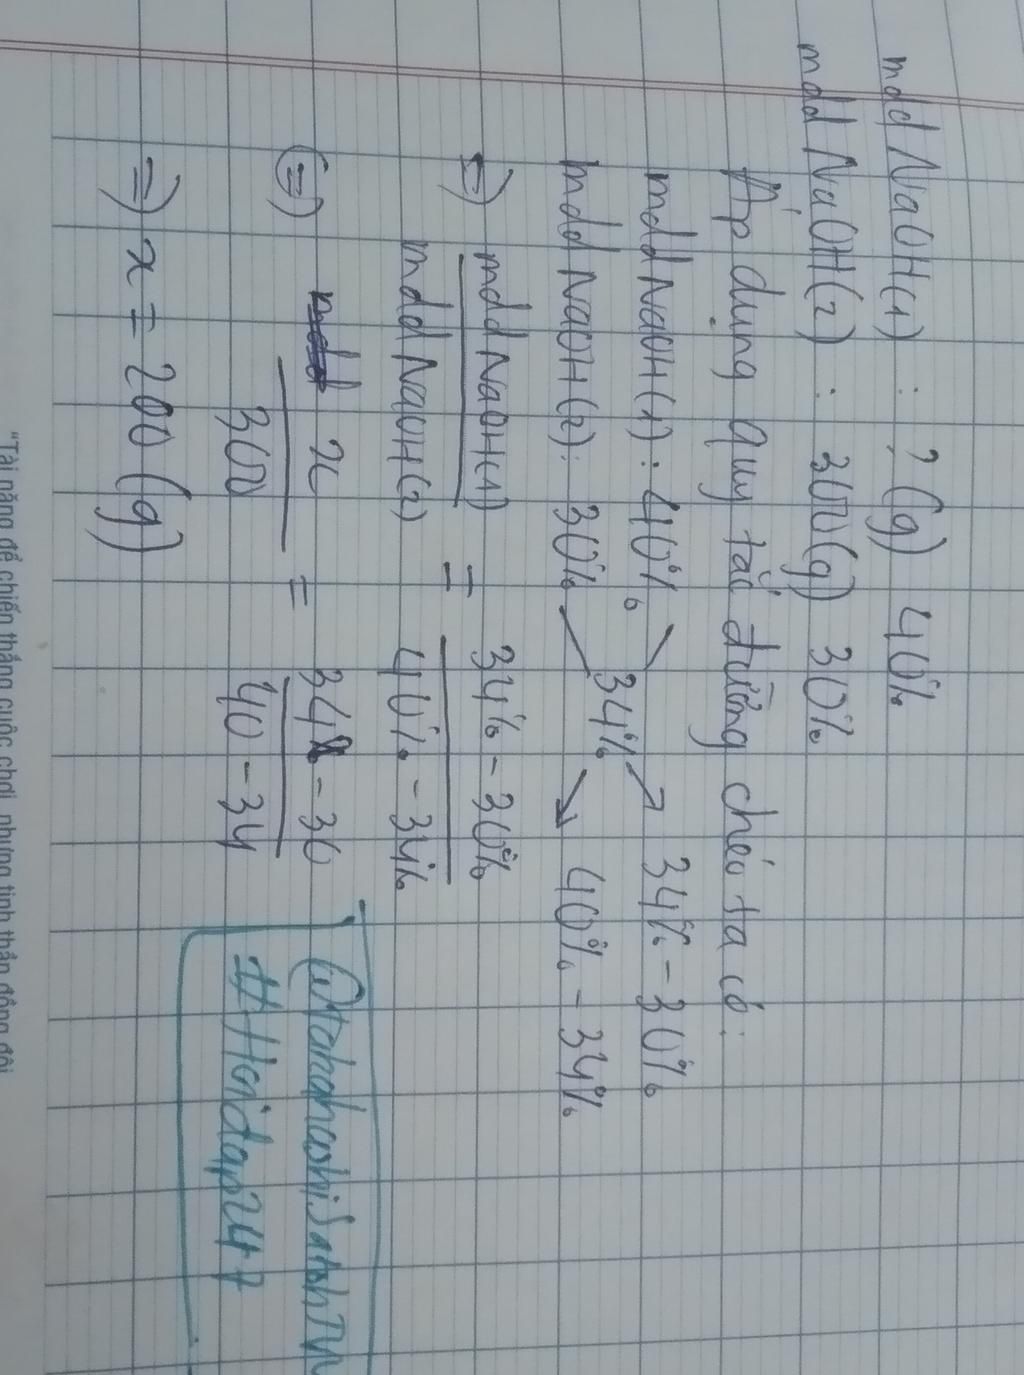 mdd NaOH(1) : ? (g) 40%
mdd NaOH(2) : 300(g) 30%
Áp dụng quy tắc đường chéo ta có:
mdd NaOH (1) : 40% 34% - 30%
34%
mdd NaOH (2) : 30% 40% - 34%
=) mdd NaOH(1) = 34% - 30%
mdd NaOH(2) 40% - 34%
(=) x = 34 - 30
300 40 - 34
=) x = 200 (g)
@takahashiSatohTV
#Hoidap247
"Tài năng để chiến thắng cuộc chơi, nhưng tinh thần đồng đội